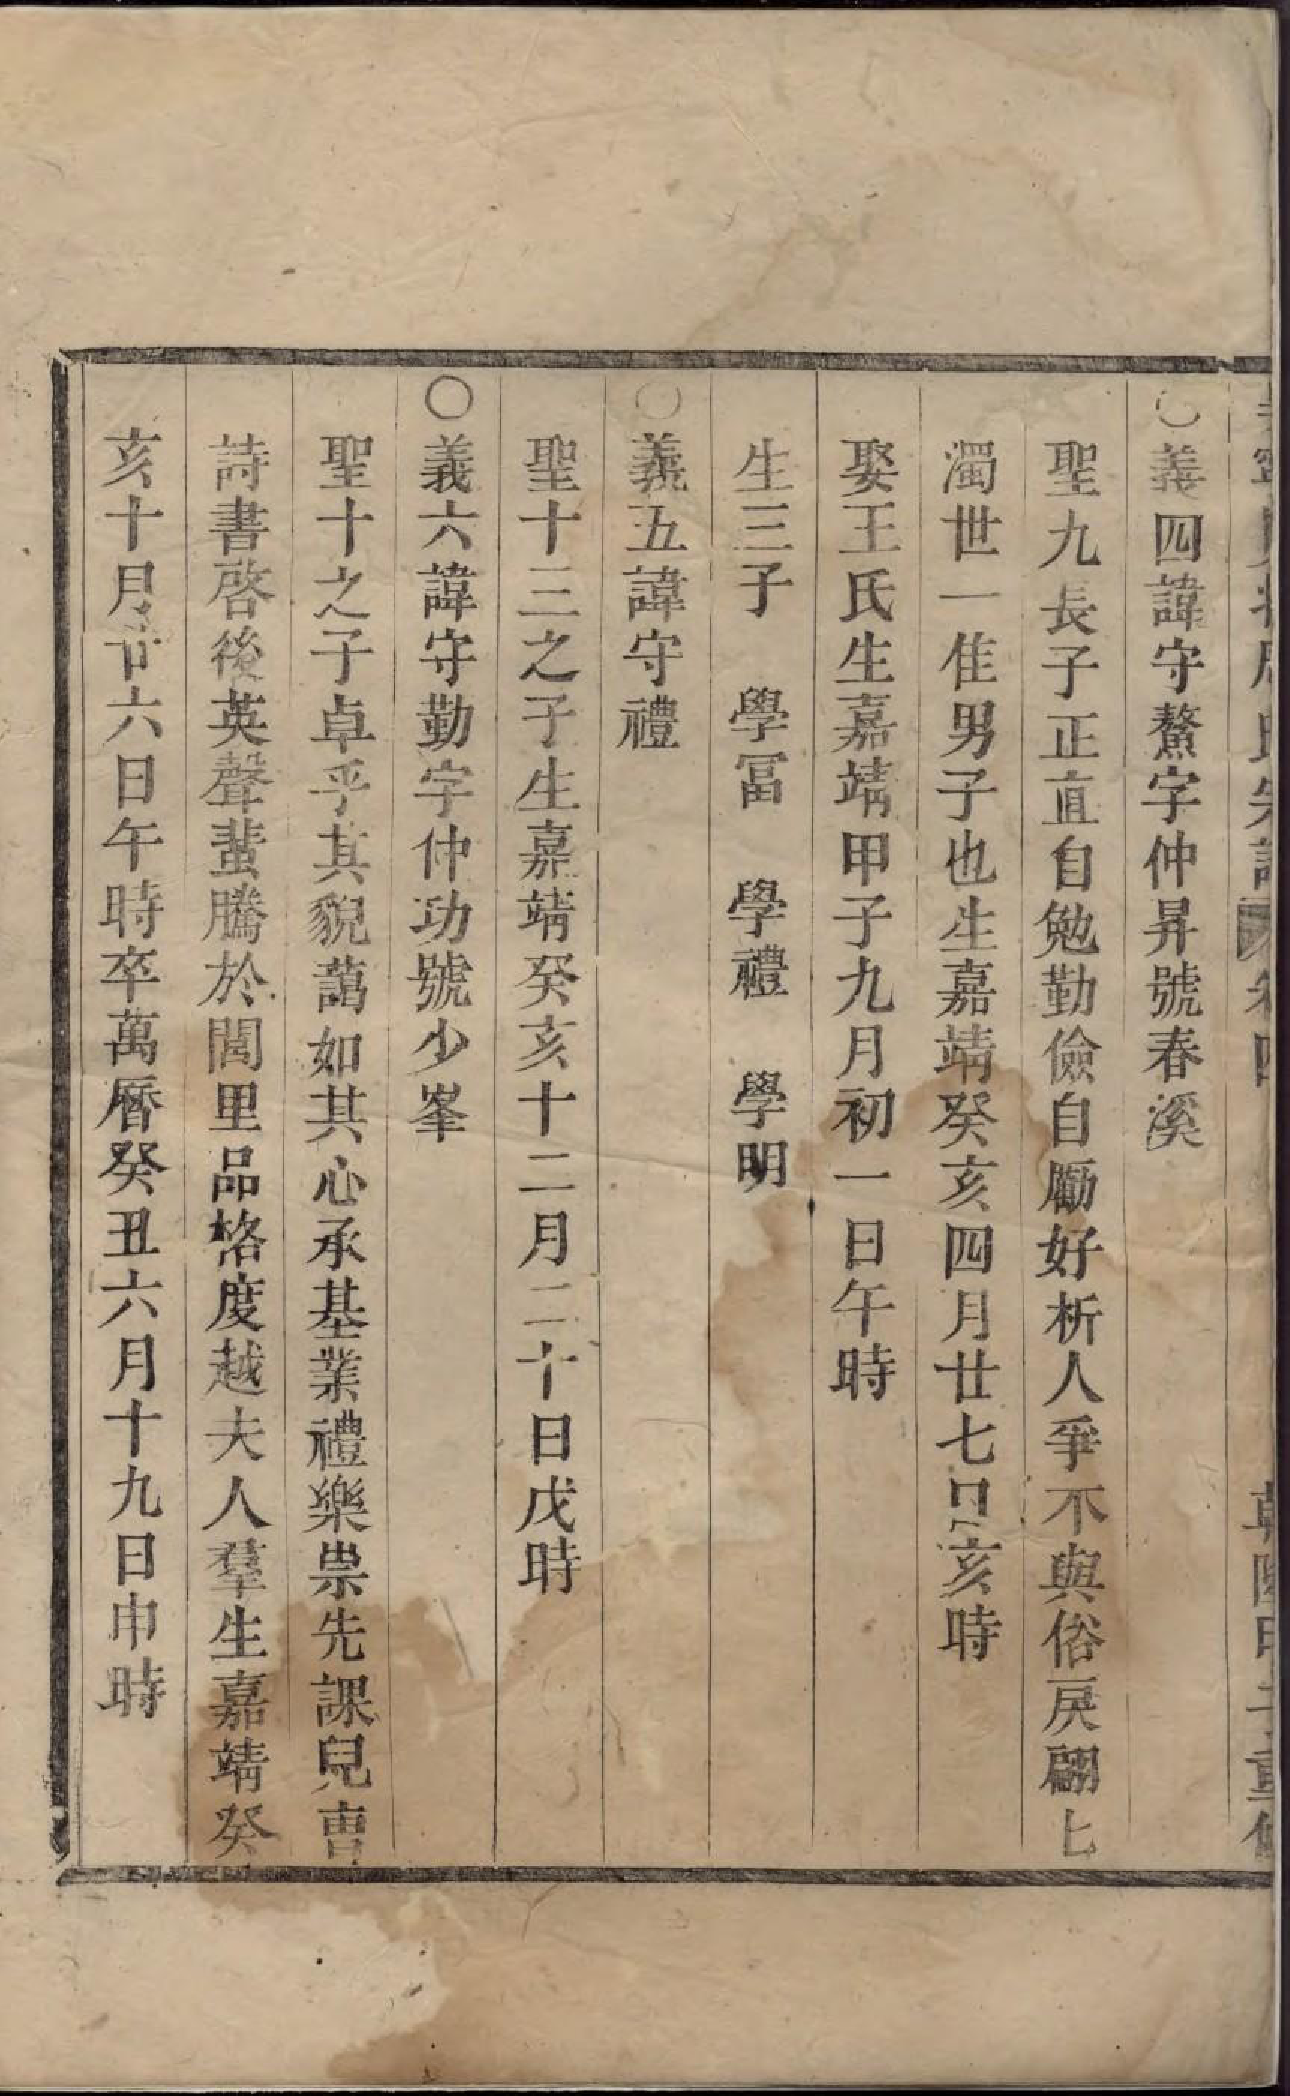 氏宗譜 卷四
○義四諱守鰲字仲昇號春溪
聖九長子正直自勉勤儉自勵好析人爭不與俗戾翩匕
濁世一佳男子也生嘉靖癸亥四月廿七日亥時
娶王氏生嘉靖甲子九月初一日午時
生三子 學冨 學禮 學明
○義五諱守禮
聖十三之子生嘉靖癸亥十二月二十日戊時
○義六諱守勤字仲功號少峯
聖十之子卓乎其貌藹如其心承基業禮樂祟先課兒曹
詩書啓後英聲蜚騰於閭里品格度越夫人羣生嘉靖癸
亥十月廿六日午時卒萬曆癸丑六月十九日申時